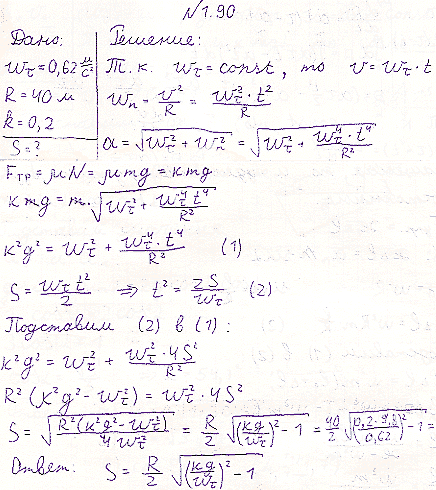 №1.90
Дано: Решение:
w_τ = 0,62 м/с² Т.к. w_τ = const, то v = w_τ · t
R = 40 м w_n = v²/R = w_τ² · t²/R
k = 0,2
S = ? a = √(w_τ² + w_n²) = √(w_τ² + w_τ⁴ · t⁴/R²)
Fтр = μN = μmg = kmg
kmg = m · √(w_τ² + w_τ⁴ t⁴/R²)
k²g² = w_τ² + w_τ⁴ · t⁴/R² (1)
S = w_τ t²/2 ⇒ t² = 2S/w_τ (2)
Подставим (2) в (1):
k²g² = w_τ² + w_τ² · 4S²/R²
R²(k²g² - w_τ²) = w_τ² · 4S²
S = √(R²(k²g² - w_τ²)/4w_τ²) = R/2 √((kg/w_τ)² - 1) = 40/2 √((0,2·9,8/0,62)² - 1 =
Ответ: S = R/2 √((kg/w_τ)² - 1